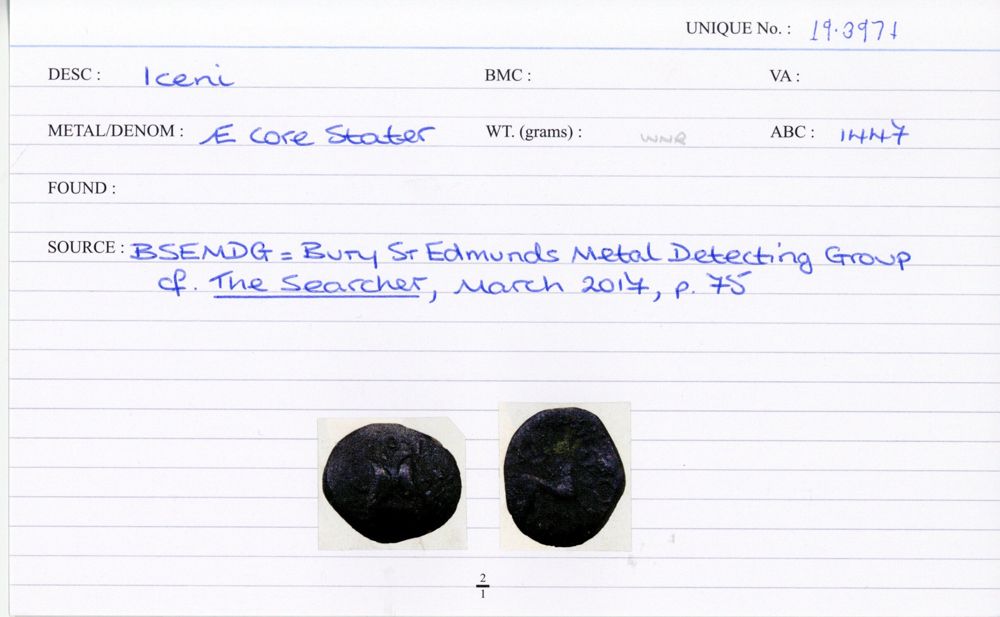 UNIQUE No. : 19.3971
DESC : Iceni BMC : VA :
METAL/DENOM : Æ core Stater WT. (grams) : WNR ABC : 1447
FOUND :
SOURCE : BSEMDG = Bury St Edmunds Metal Detecting Group
cf. The Searcher, March 2017, p. 75
2
1